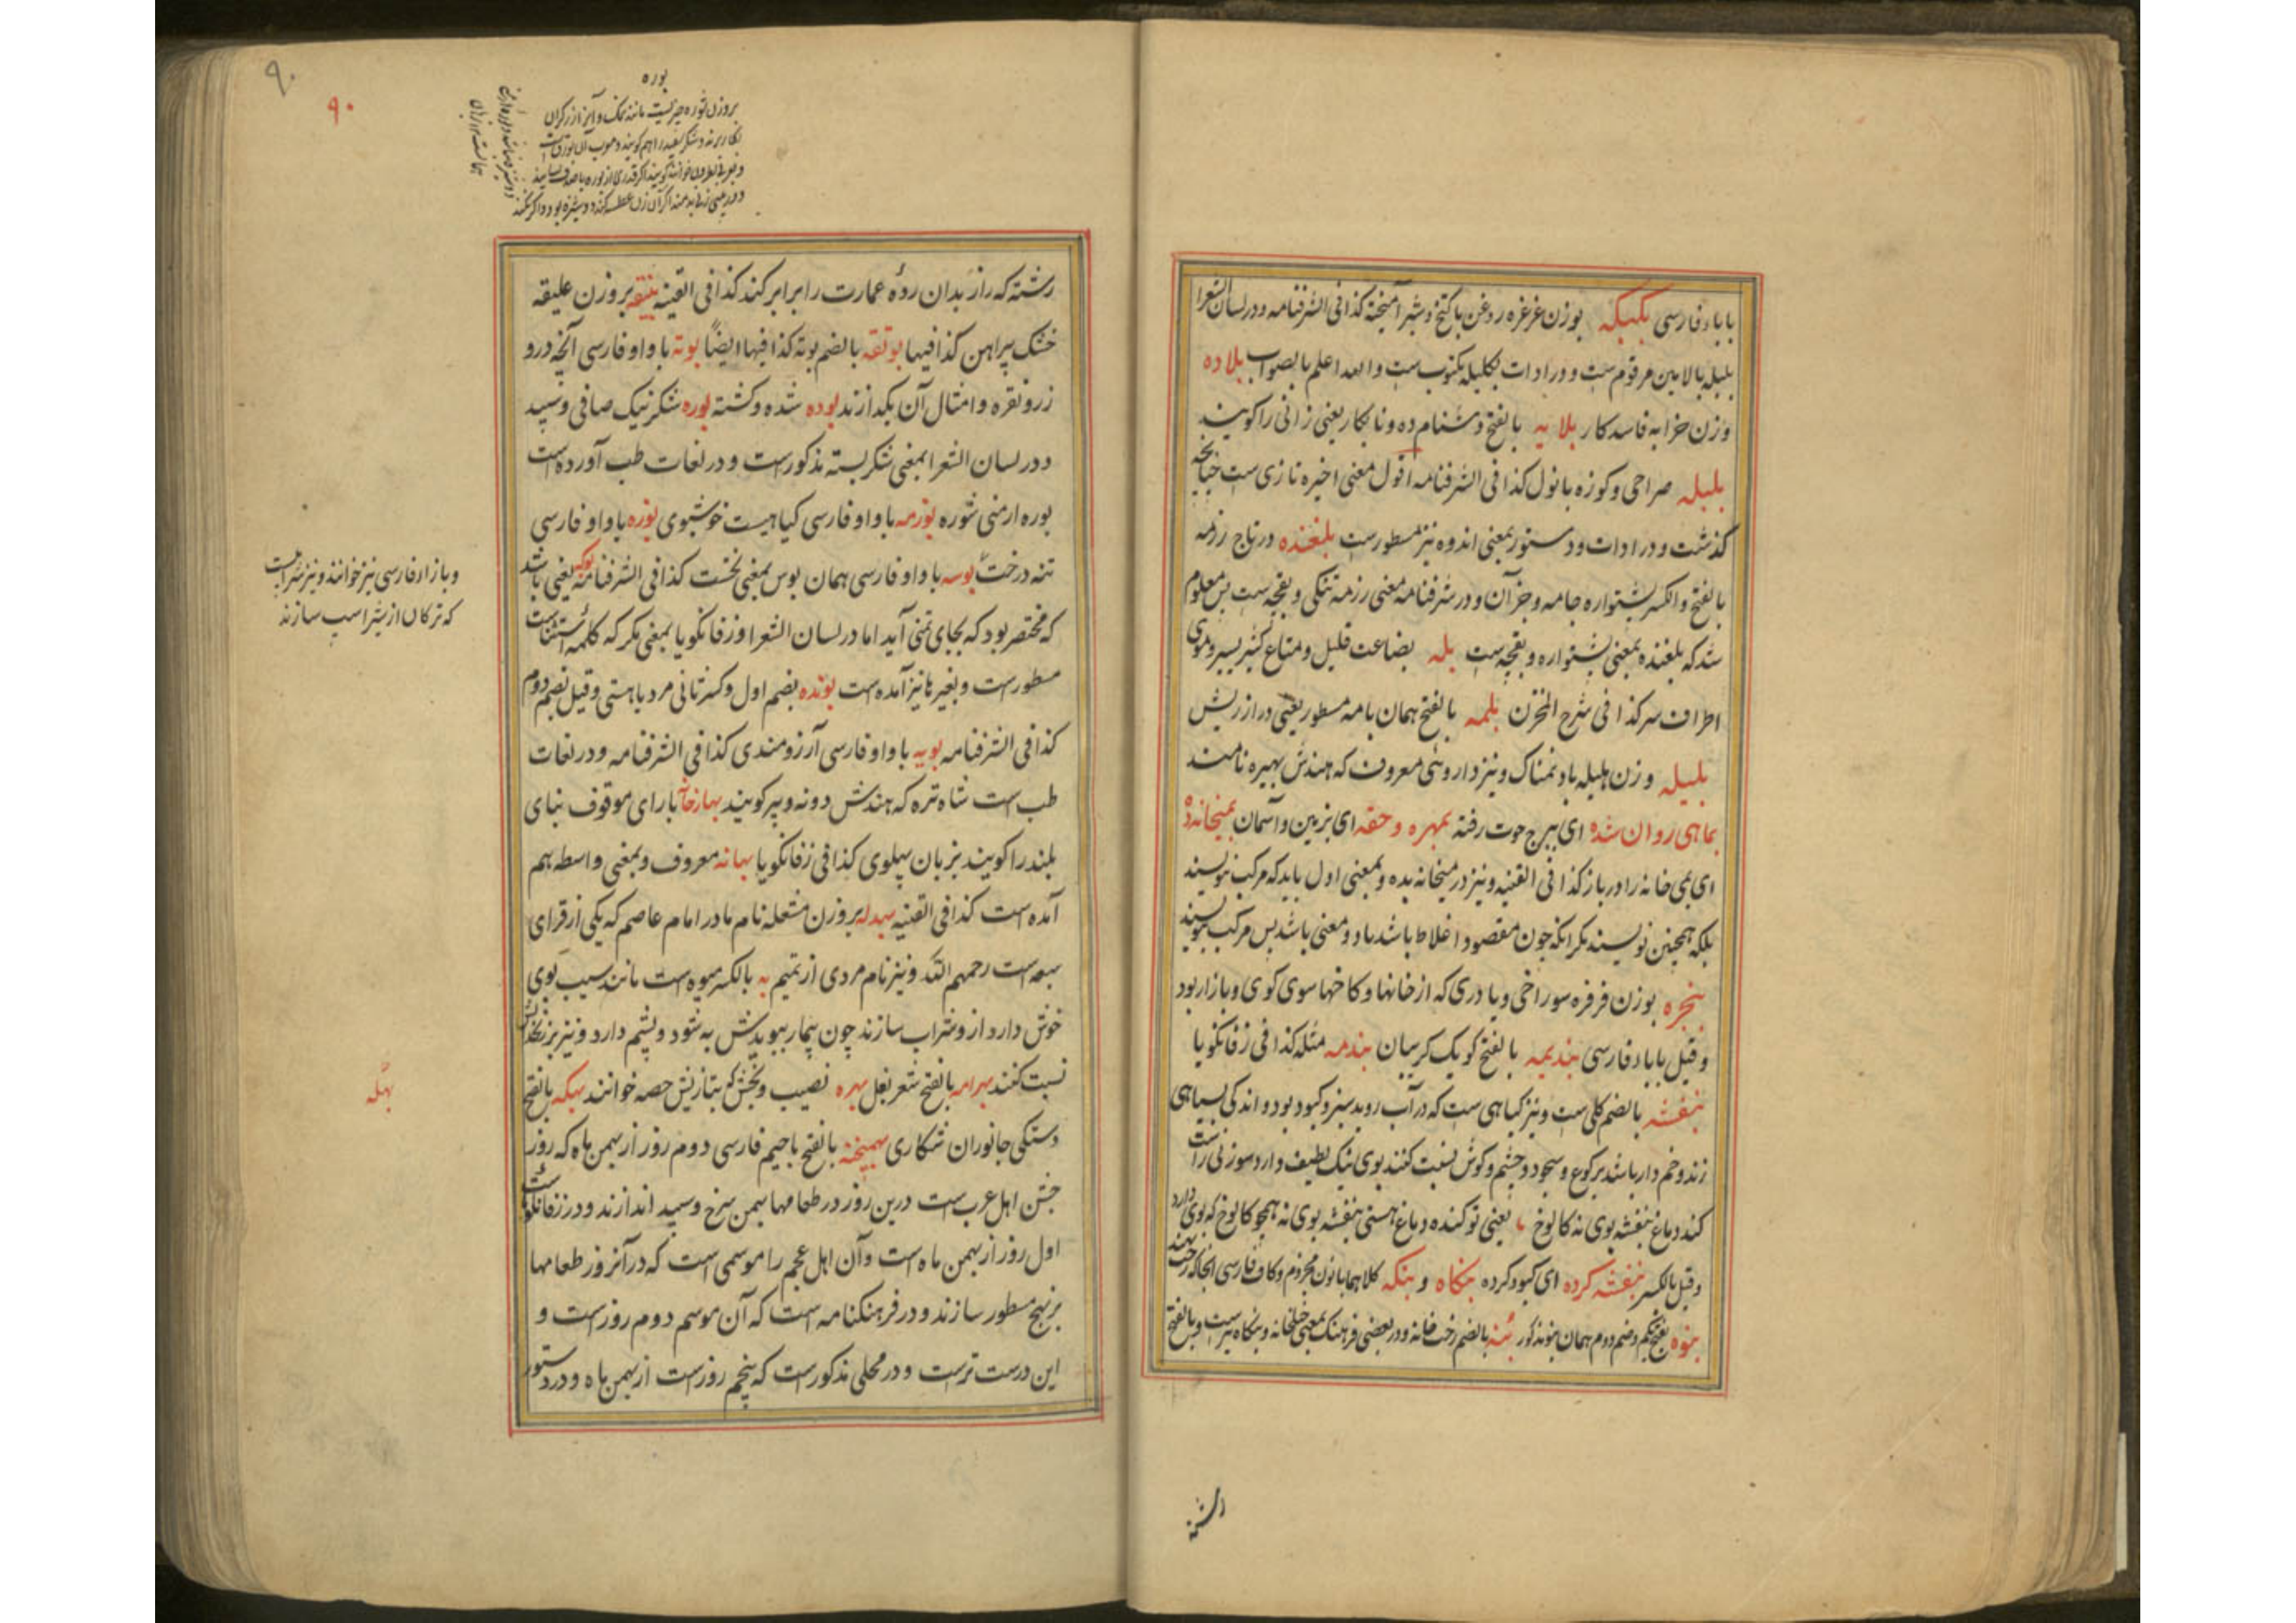 بابا فارسی بکبکه بوزن غرغره روغن باکنخ و شیر آمیخته کذا فی الشرفنامه و در لسان الشعرا
بلبله بالا بین مرقوم ست و در ادات بکلیله مکتوب ست و الله اعلم بالصواب بلاده
وزن خرابه فاسد کار بلایه بالفتح دشنام ده و نابکار یعنی زانی را کویند
بلبله صراحی و کوزه بانول کذا فی الشرفنامه اقول معنی اخیره تازی ست چنانچه
کذشت و در ادات و دستور بمعنی اندوه نیز مسطورست بلغنده در تاج رزمه
بالفتح و الکسر پشتواره جامه و جز آن و در شرفنامه معنی رزمه تنکی و بقچه ست پس معلوم
شد که بلغنده بمعنی پشتواره و بقچه ست بله بضاعت قلیل و متاع کثیر یسیر و موی
اطراف سر کذا فی شرح المخزن بلمه بالفتح همان بامه مسطور یعنی دراز ریش
بلیله وزن هلیله باد نمناک و نیز داروئی معروف که هندش بهیره نامند
بماهی روان شده ای ببرج حوت رفته بمهره و حقه ای بزمین و آسمان بمیخانه ده
ای می خانه را در باز کذا فی القنیه و نیز در میخانه بده و بمعنی اول باید که مرکب نویسند
بلکه همچنین نویسند مکر انکه چون مقصود اغلاط باشد باد و معنی باشد پس مرکب نویسند
بنجره بوزن فرفره سوراخی و یا دری که از خانها و کاخها سوی کوی و بازار بود
و قیل با باء فارسی بندیمه بالفتح کویک کریبان بندمه مثله کذا فی زفانکویا
بنفشه بالضم کلی ست و نیز کیاهی ست که در آب روید سبز و کبود بود و اندکی بسیاهی
زند و خم دار باشد برکوع و سجود و چشم و کوش نسبت کنند بوی نیک لطیف دارد سوزنی راست
کند دماغ بنفشه بوی نه کالوخ یعنی تو کنده دماغ هستی بنفشه بوی نه همچو کالوخ که بوی دارد
و قیل بالکسر بنفشه کرده ای کبود کرده بنکاه و بنکه کلاهما بانون مجزوم و کاف فارسی انجا که رخت نهند
بنوه بفتح یکم و ضم دوم همان بنو مذکور بنه بالضم رخت خانه و در بعضی فرهنک بمعنی خانه و بنکاه نیرست و بالفتح
رشته
۹۰
۹۰
بوره
بروزن شوره چیزیست مانند نمک و آنرا زرکران
بکار برند و شکر سفید را هم کویند و معرب آن بورق است
رشته که راز بدان ردهٔ عمارت را برابر کند کذا فی القنیه بنیقه بروزن علیقه
خشک پیراهن کذا فیها بوتقه بالضم بوته کذا فیها ایضاً بوته با واو فارسی آنچه درو
زر و نقره و امثال آن بکدازند بوده شده و کشته بوره شکر نیک صافی و سپید
و در لسان الشعرا بمعنی شکر بسته مذکورست و در لغات طب آورده است
بوره ارمنی شوره بورمه با واو فارسی کیاهیست خوشبوی بوزه با واو فارسی
تنه درخت بوسه با واو فارسی همان بوس بمعنی نخست کذا فی الشرفنامه بوکه یعنی باشد
که مختصر بود که بجای تمنی آید اما در لسان الشعرا و زفانکویا بمعنی مکر که کلمه استثناست
مسطورست و بغیر ها نیز آمده است بونده بضم اول و کسر ثانی مرد با هستی و قیل بضم دوم
کذا فی الشرفنامه بویه با واو فارسی آرزومندی کذا فی الشرفنامه و در لغات
طب است شاه تره که هندش دونه و پیر کویند بهارخانه با رای موقوف بنای
بلند را کویند بزبان پهلوی کذا فی زفانکویا بهانه معروف و بمعنی واسطه هم
آمده است کذا فی القنیه بهدله بروزن مشعله نام مادر امام عاصم که یکی از قرای
سبعه است رحمهم الله و نیز نام مردی از تمیم به بالکسر میوه است مانند سیب بوی
خوش دارد از و شراب سازند چون بیمار ببویدش به شود و پشم دارد و نیز بزنخدانش
نسبت کنند بهرامه بالفتح شعر نغل بهره نصیب و بخش که بتازیش حصه خوانند بهکه بالفتح
دستکی جانوران شکاری بهمنجنه بالفتح با جیم فارسی دوم روز از بهمن ماه که روز
جشن اهل عرب ست درین روز در طعامها بهمن سرخ و سپید اندازند و در زفانکویاست
اول روز از بهمن ماه است و آن اهل عجم را موسمی است که در آنروز طعامها
برنهج مسطور سازند و در فرهنکنامه است که آن موسم دوم روزست و
این درست ترست و در محلی مذکورست که پنجم روزست از بهمن ماه و در دستور
و با زاء فارسی نیز خوانند و نیز شرابیست
که ترکان از شیر اسپ سازند
بهله